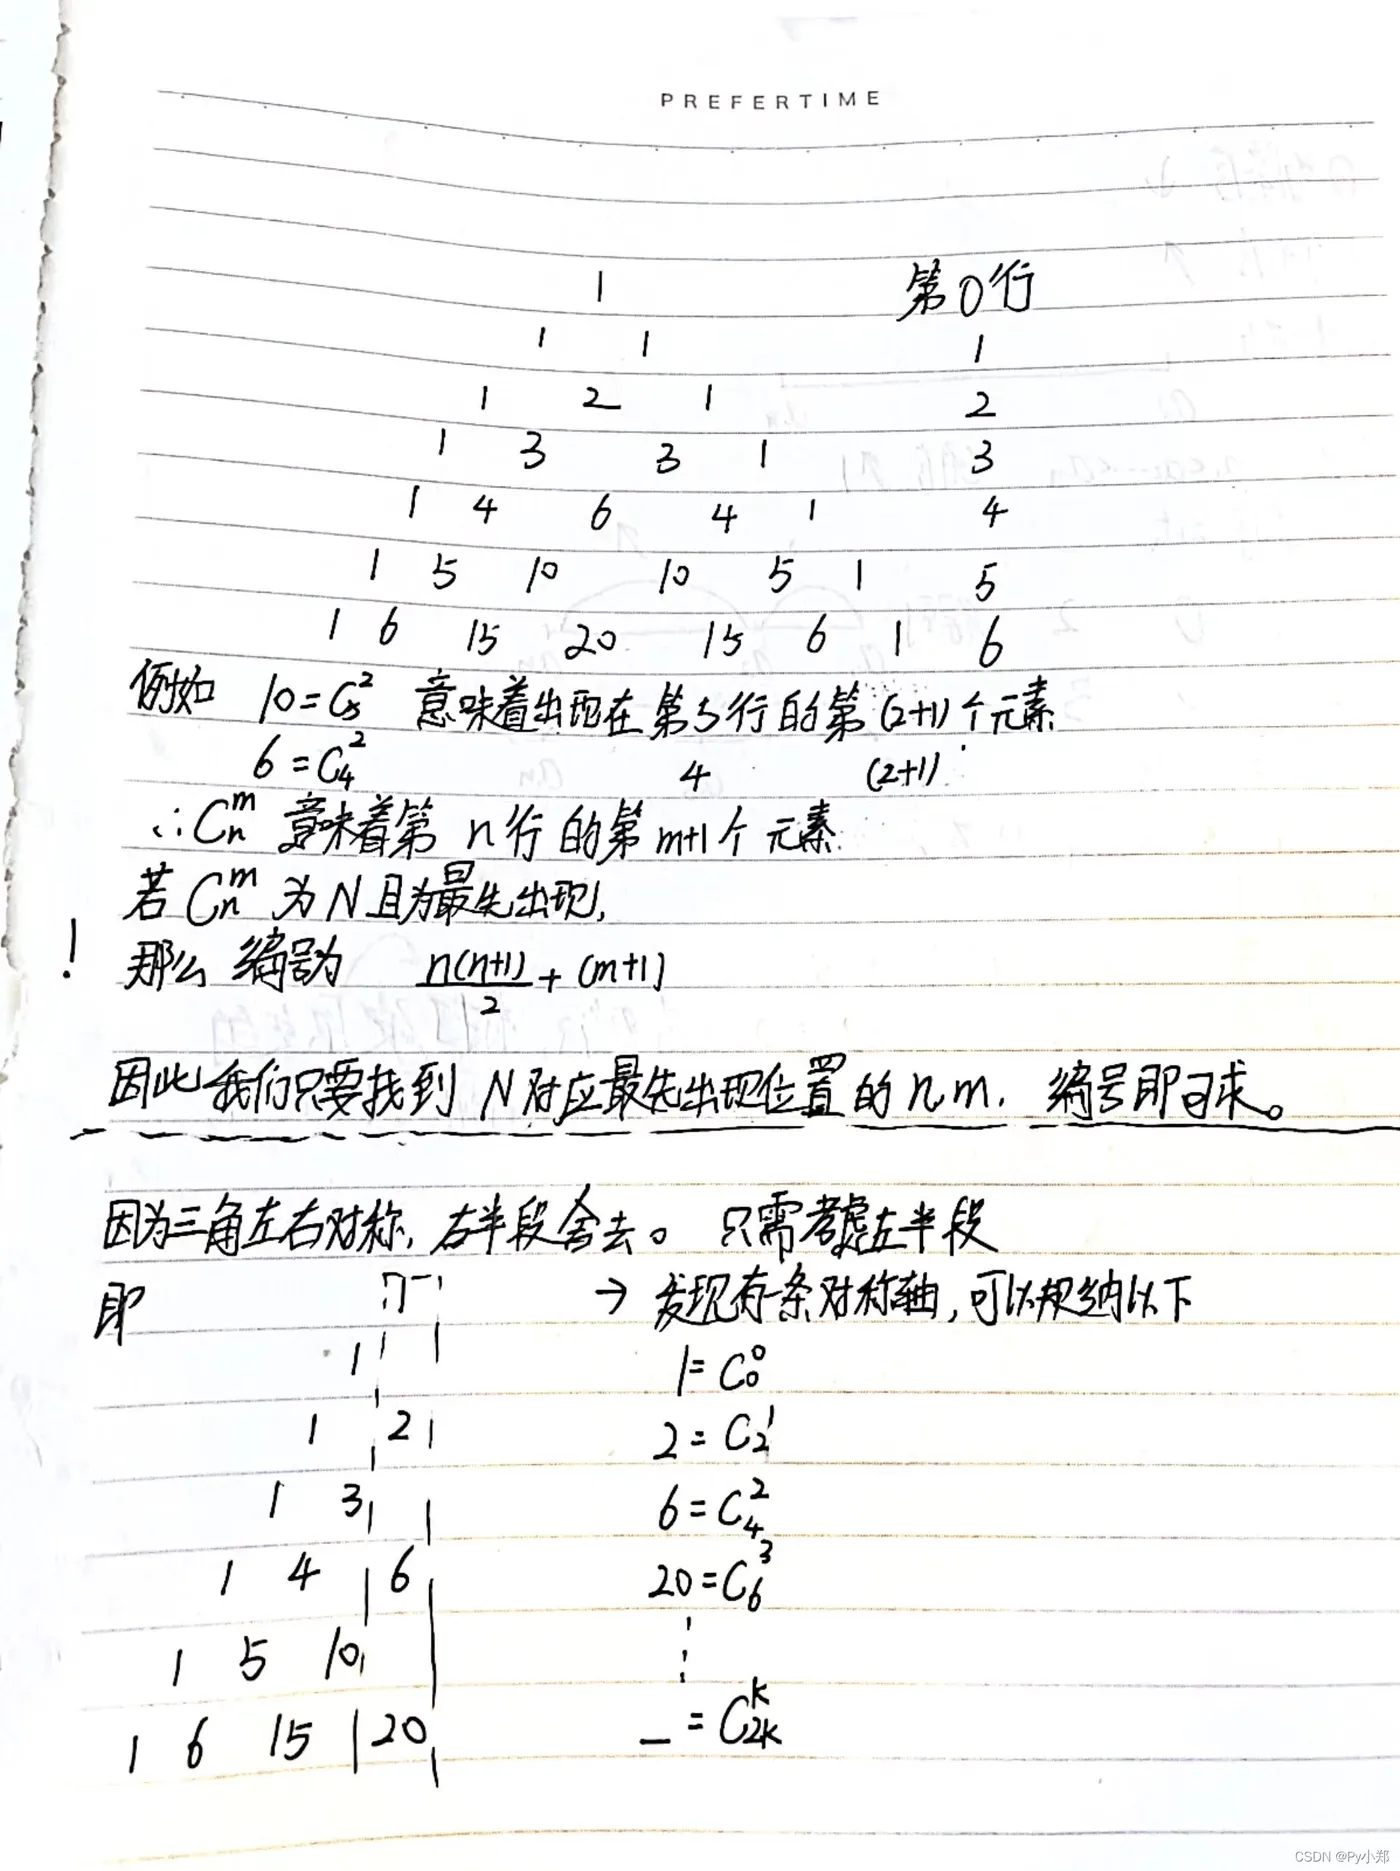 PREFERTIME
1 第0行
1 1 1
1 2 1 2
1 3 3 1 3
1 4 6 4 1 4
1 5 10 10 5 1 5
1 6 15 20 15 6 1 6
例如 10=C₅² 意味着出现在第5行的第(2+1)个元素
6=C₄² 4 (2+1)
∴Cₙᵐ 意味着第n行的第m+1个元素
若Cₙᵐ为N且为最先出现,
! 那么编号为 n(n+1)/2+(m+1)
因此我们只要找到N对应最先出现位置的n,m. 编号即可求。
因为三角左右对称,右半段舍去。只需考虑左半段
即 1 → 发现有一条对称轴,可以规纳以下
1 1=C₀⁰
1 2 2=C₂¹
1 3 6=C₄²
1 4 6 20=C₆³
1 5 10 ⋮
1 6 15 20 _=C₂ₖᵏ
CSDN @Py小郑